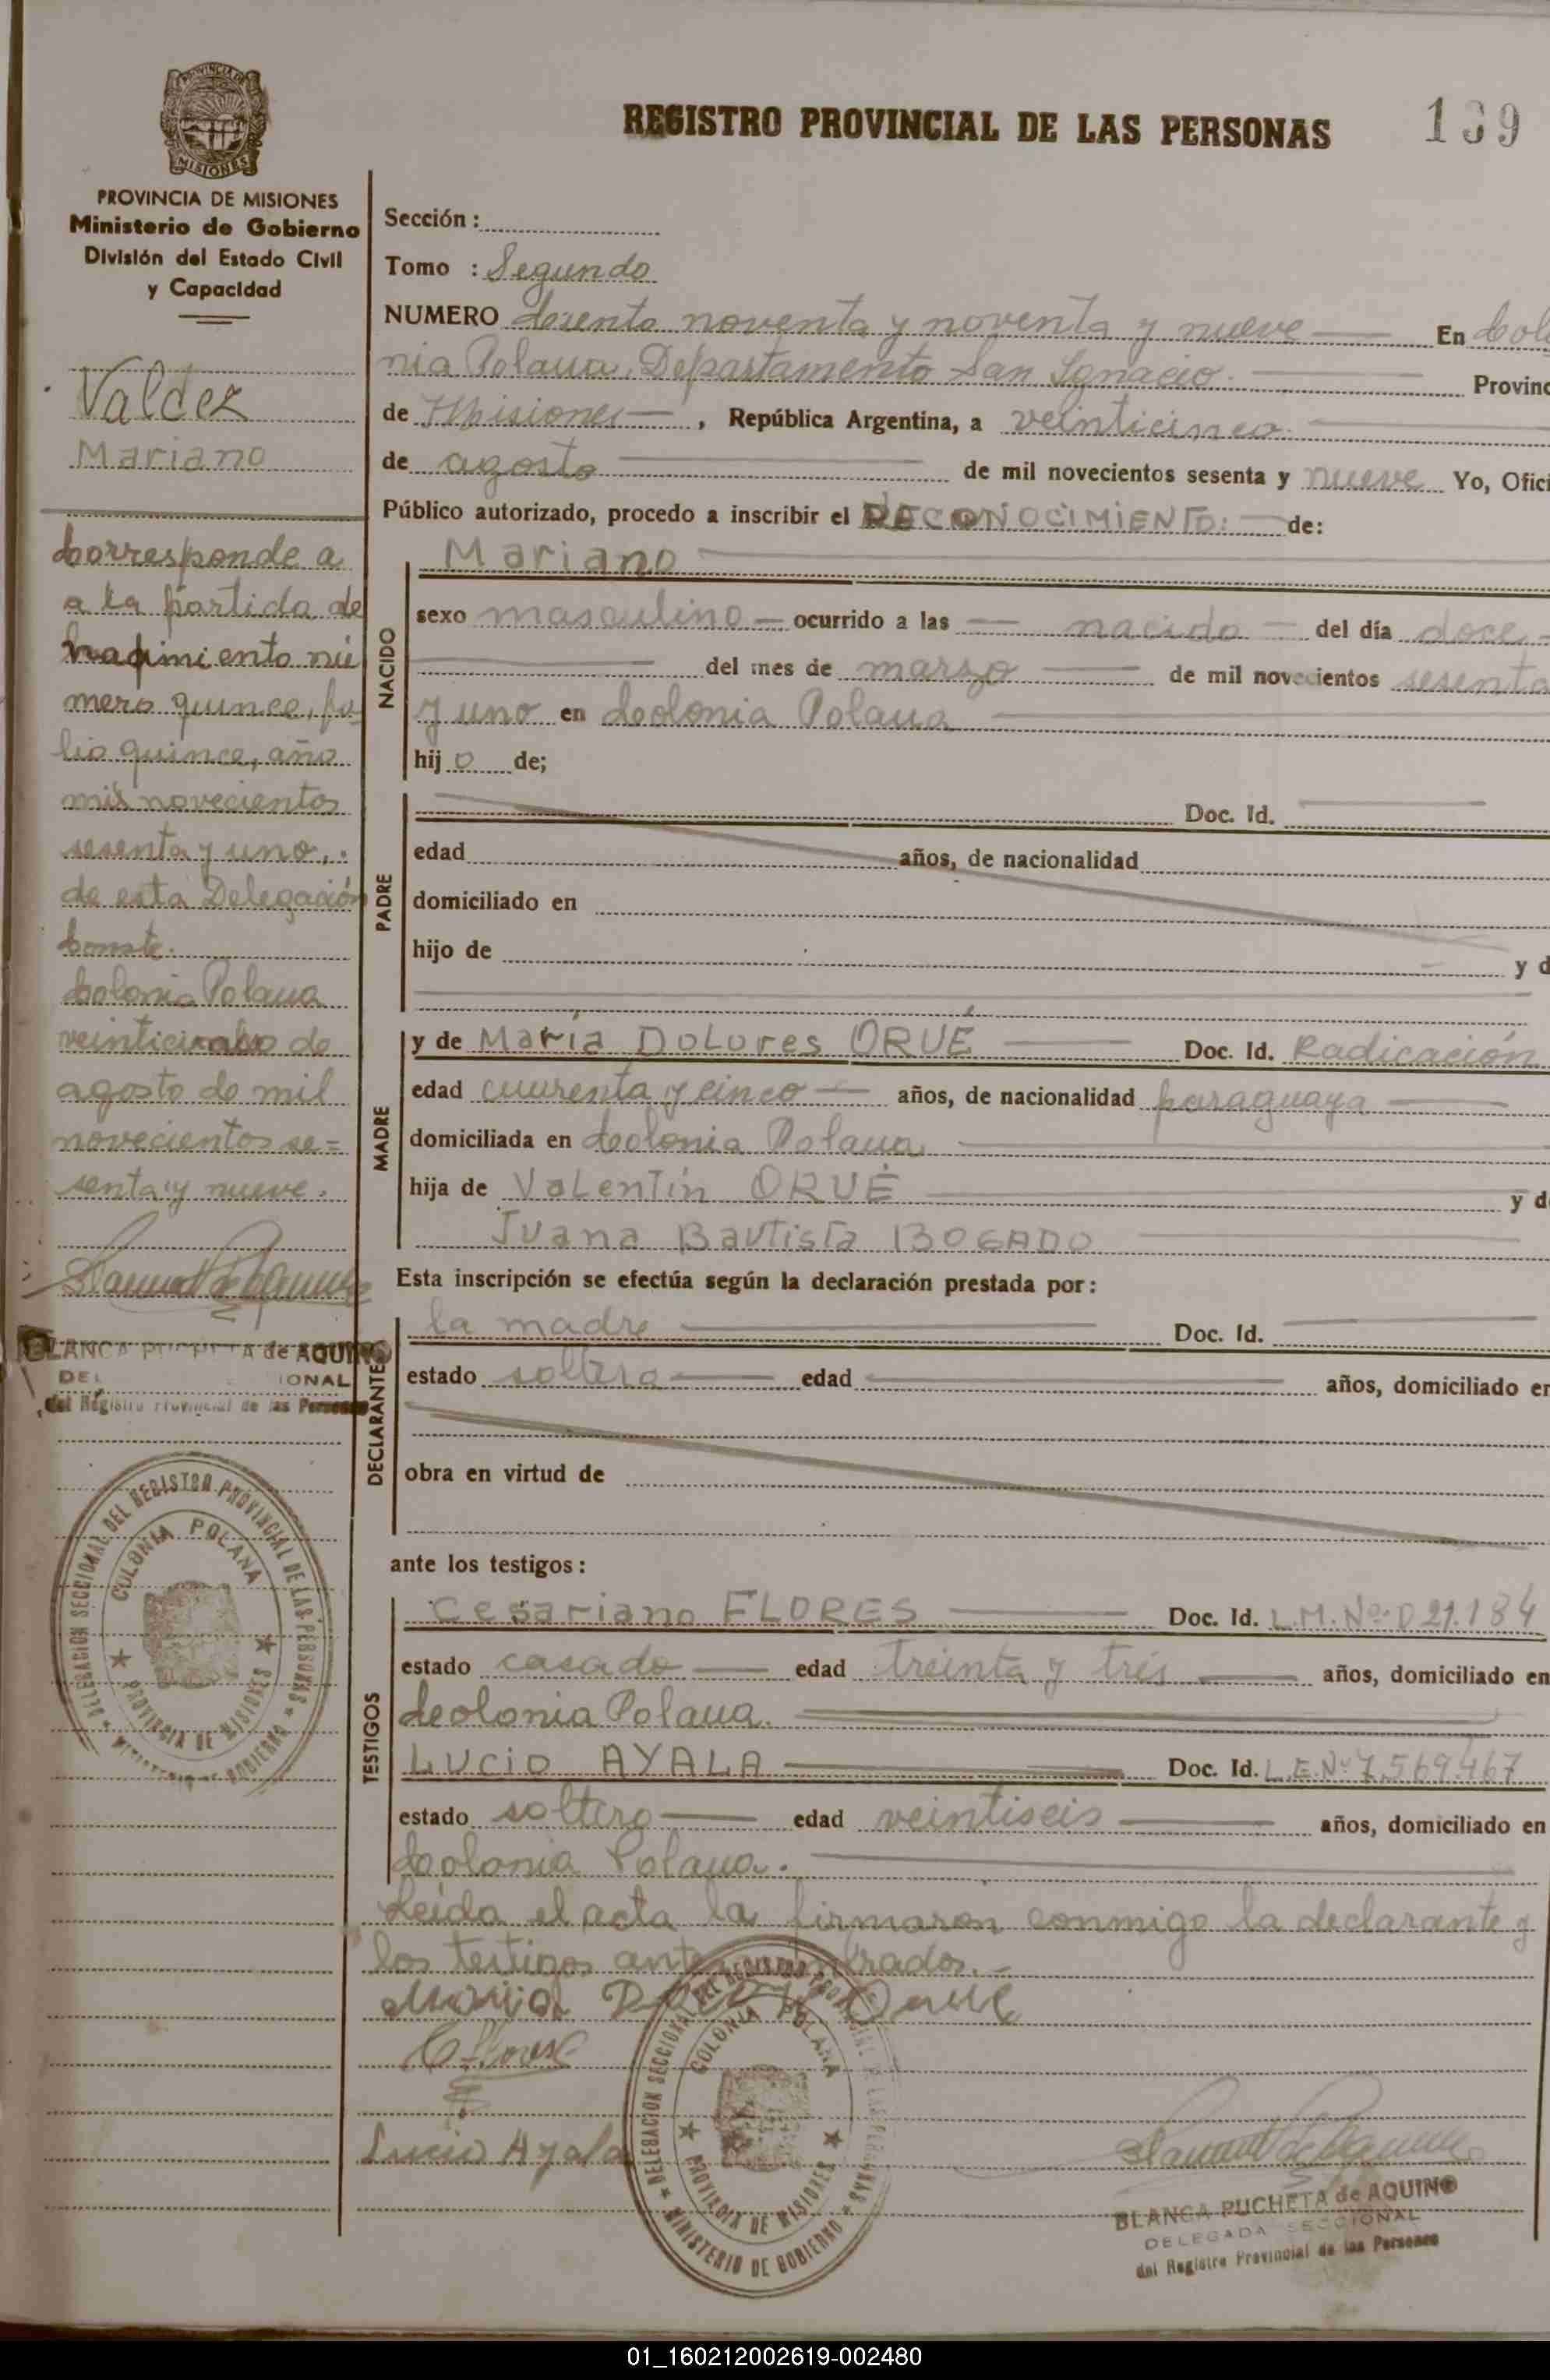 REGISTRO PROVINCIAL DE LAS PERSONAS
139
PROVINCIA DE
MISIONES
PROVINCIA DE MISIONES
Ministerio de Gobierno
División del Estado Civil
y Capacidad
Valdez
Mariano
Corresponde a
a la partida de
nacimiento nú
mero quince, fo-
lio quince, año
mil novecientos
sesenta y uno,.
de esta Delegación
Conste.
Colonia Polana
de
agosto de mil
novecientos se=
senta y nueve.
BLANCA PUCHETA de AQUINO
DEL IONAL
del Registro Provincial de las Personas
DELEGACION SECCIONAL DEL REGISTRO PROVINCIAL DE LAS PERSONAS
MINISTERIO DE GOBIERNO
COLONIA POLANA
PROVINCIA DE MISIONES
Sección :
Tomo : Segundo
NUMERO noventa y noventa y nueve En Colo
nia Polana, Departamento San Ignacio. Provinc
de Misiones , República Argentina, a veinticinco
de agosto de mil novecientos sesenta y nueve Yo, Ofici
Público autorizado, procedo a inscribir el RECONOCIMIENTO: de:
NACIDO
Mariano
sexo masculino ocurrido a las nacido del día doce
del mes de marzo de mil novecientos sesenta
y uno en Colonia Polana
hijo de;
PADRE
Doc. Id.
edad años, de nacionalidad
domiciliado en
hijo de y d
MADRE
y de María DOLores ORUÉ Doc. Id. Radicación
edad cuarenta y cinco años, de nacionalidad paraguaya
domiciliada en Colonia Polana
hija de VaLentín ORUÉ y d
Juana Bautista BOGADO
Esta inscripción se efectúa según la declaración prestada por :
DECLARANTE
la madre Doc. Id.
estado soltera edad años, domiciliado en
obra en virtud de
ante los testigos :
TESTIGOS
Cesariano FLORES Doc. Id. L.M. Nº D 21.184
estado casado edad treinta y tres años, domiciliado en
Colonia Polana.
Lucio AYALA Doc. Id. L.E. Nº 7.569.467
estado soltero edad veintiseis años, domiciliado en
Colonia Polana.
Leída el acta la firmaron conmigo la declarante y
los testigos antenombrados.-
María Orué
CFlores
Lucio Ayala
DELEGACION SECCIONAL DEL REGISTRO PROVINCIAL DE LAS PERSONAS
MINISTERIO DE GOBIERNO
COLONIA POLANA
PROVINCIA DE MISIONES
BLANCA PUCHETA de AQUINO
DELEGADA SECCIONAL
del Registro Provincial de las Personas
01_160212002619-002480